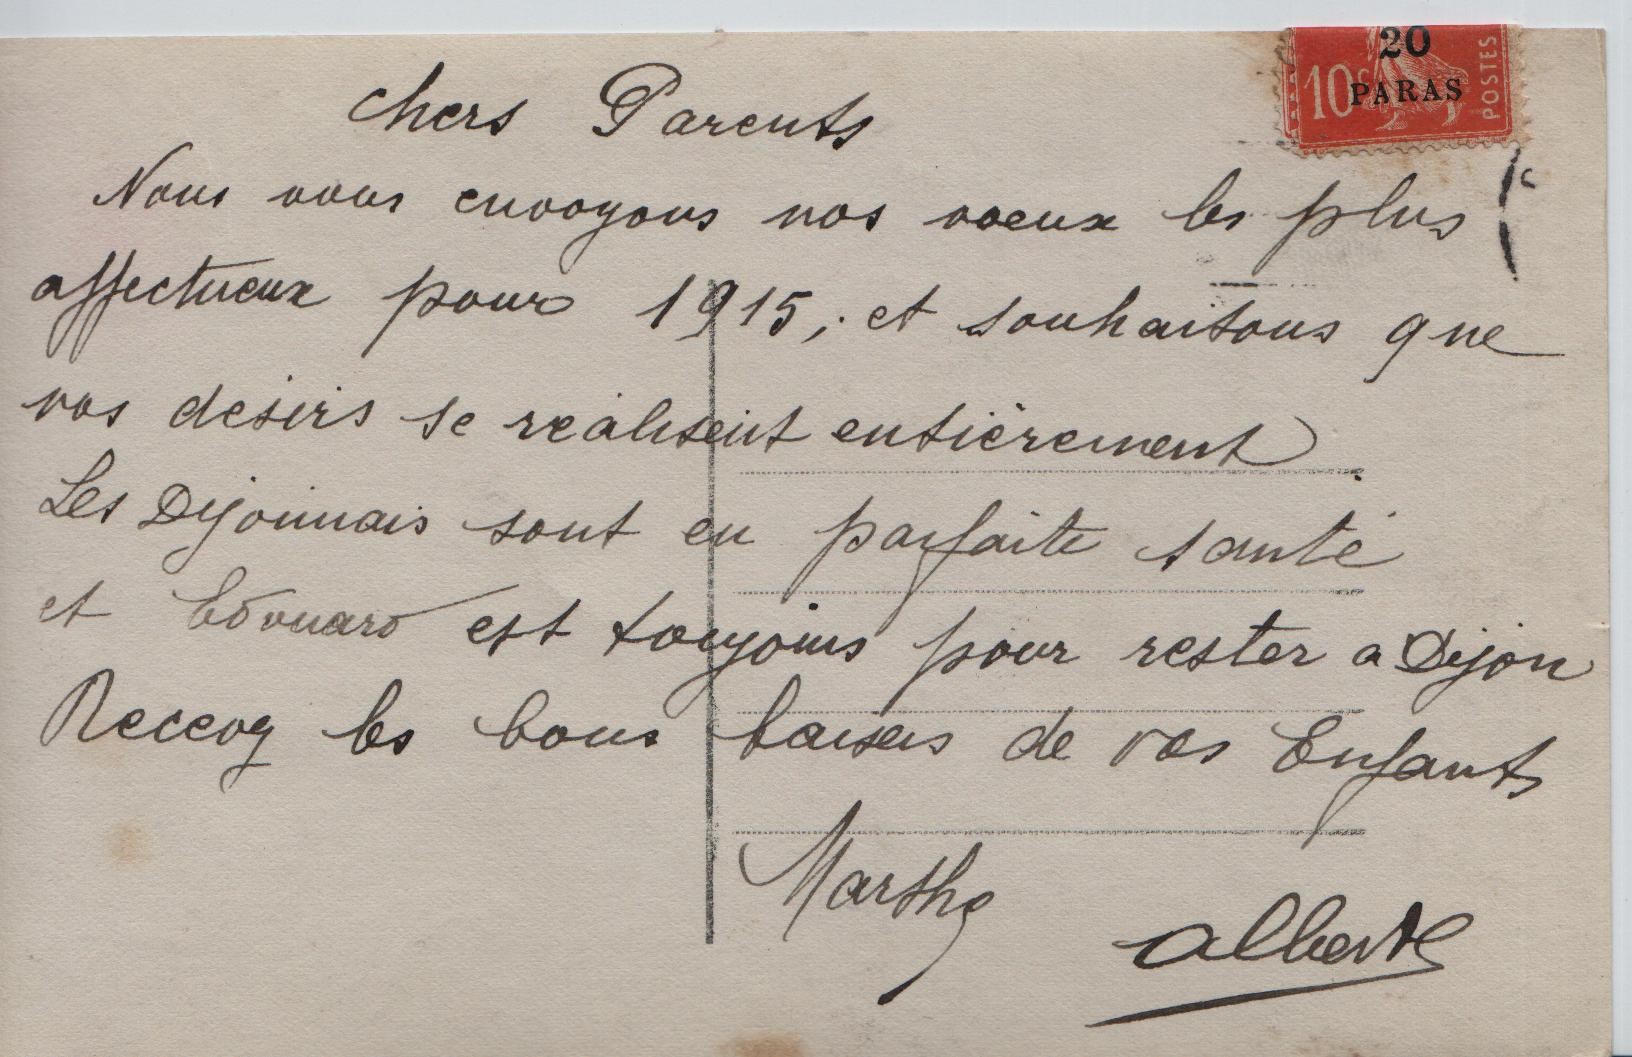 20
10c PARAS
POSTES
Chers Parents
Nous vous envoyons nos voeux les plus
affectueux pour 1915, et souhaitons que
vos désirs se réalisent entièrement
Les Dijonnais sont en parfaite santé
et Edouard est toujours pour rester a Dijon
Recevez les bons baisers de vos Enfants
Marthe
Albert